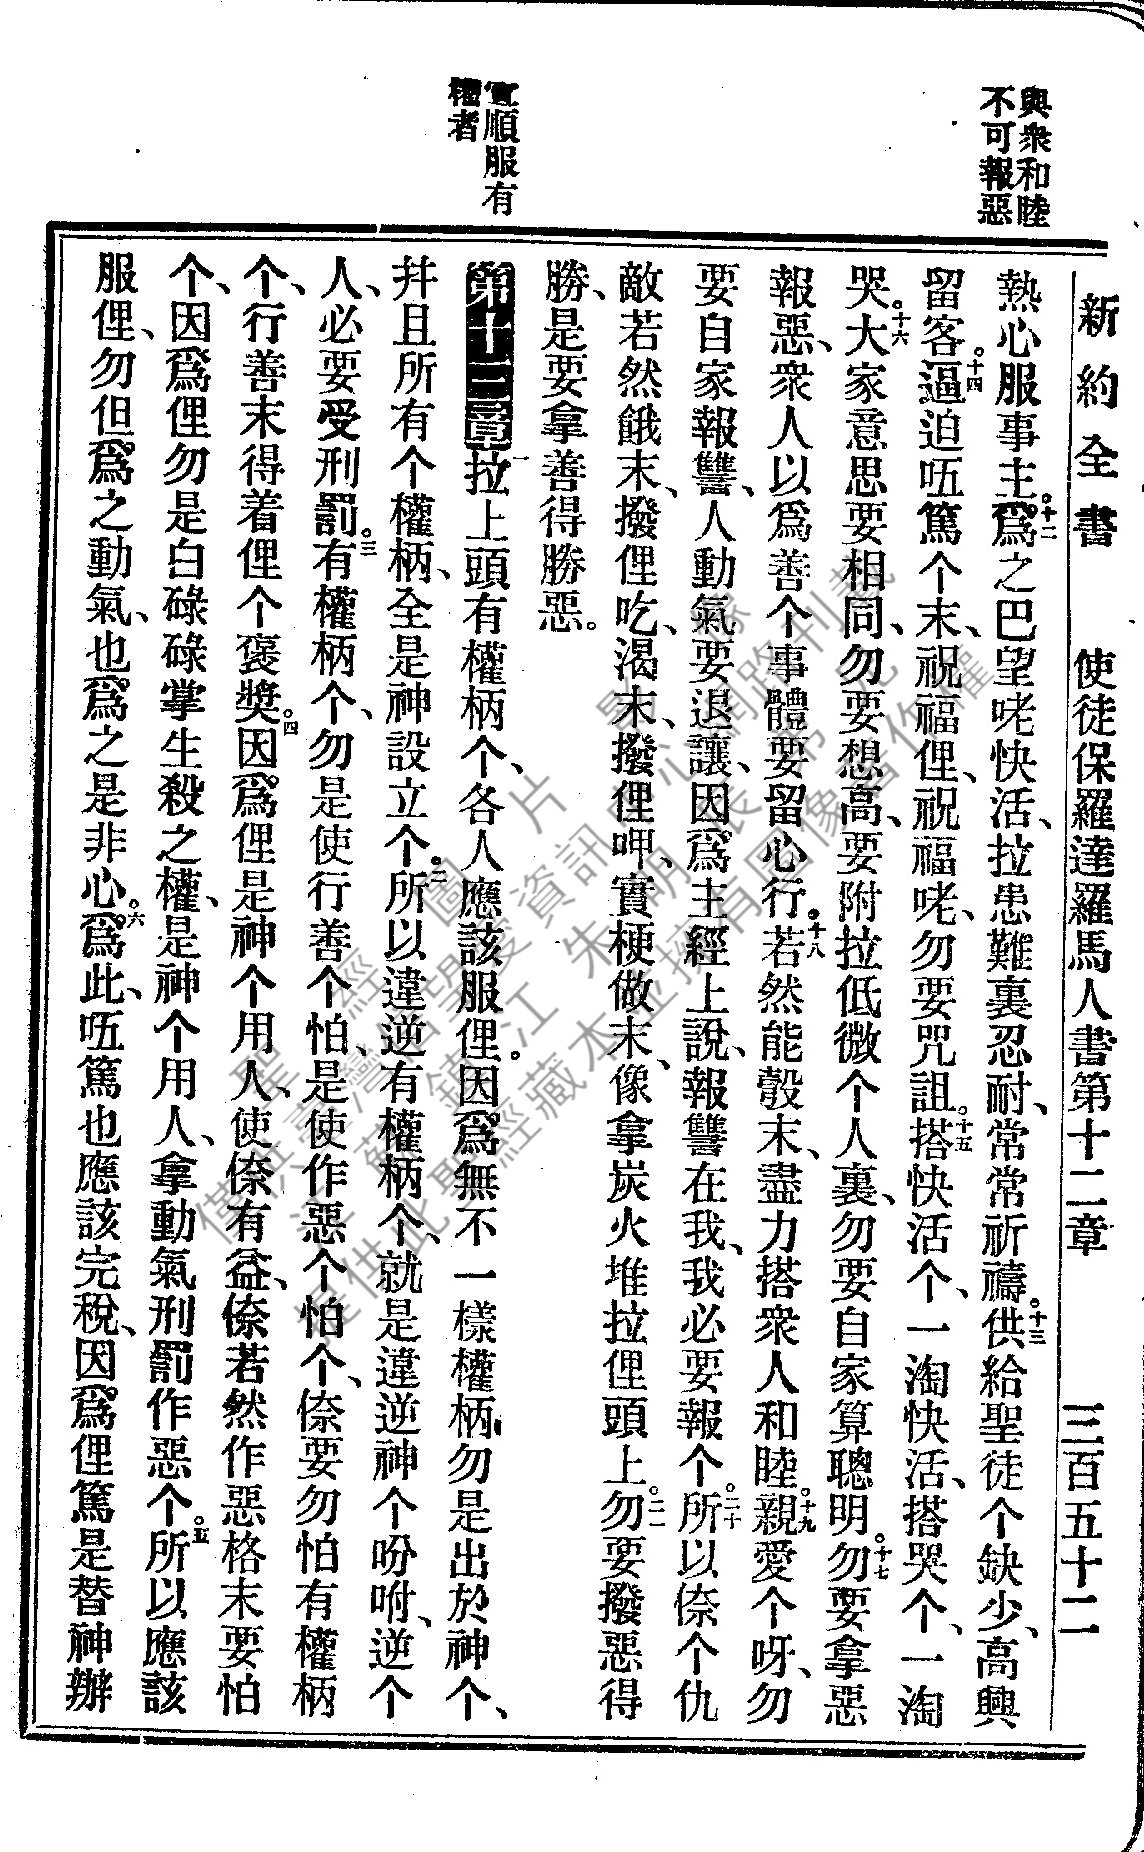 新約全書　使徒保羅達羅馬人書第十二章　三百五十二
與衆和睦
不可報惡
宜順服有
權者
熱心服事主。十二爲之巴望咾快活、拉患難裏忍耐、常常祈禱。十三供給聖徒个缺少、高興
留客。十四逼迫㑚篤个末、祝福俚、祝福咾、勿要咒詛。十五搭快活个、一淘快活、搭哭个、一淘
哭。十六大家意思要相同、勿要想高、要附拉低微个人裏、勿要自家算聰明。十七勿要拿惡
報惡、衆人以爲善个事體要留心行。十八若然能彀末、盡力搭衆人和睦。十九親愛个呀、勿
要自家報讐、人動氣要退讓、因爲主經上說、報讐在我、我必要報个。二十所以倷个仇
敵若然餓末、撥俚吃、渴末、撥俚呷、實梗做末、像拿炭火堆拉俚頭上。二一勿要撥惡得
勝、是要拿善得勝惡。
第十三章一拉上頭有權柄个、各人應該服俚。因爲無不一樣權柄、勿是出於神个、
幷且所有个權柄、全是神設立个。二所以違逆有權柄个、就是違逆神个吩咐、逆个
人、必要受刑罰。三有權柄个、勿是使行善个怕、是使作惡个怕个、倷要勿怕有權柄
个、行善末得着俚个褒獎。四因爲俚是神个用人、使倷有益、倷若然作惡格末要怕
个、因爲俚勿是白碌碌掌生殺之權、是神个用人、拿動氣刑罰作惡个。五所以應該
服俚、勿但爲之動氣、也爲之是非心。六爲此、㑚篤也應該完稅、因爲俚篤是替神辦